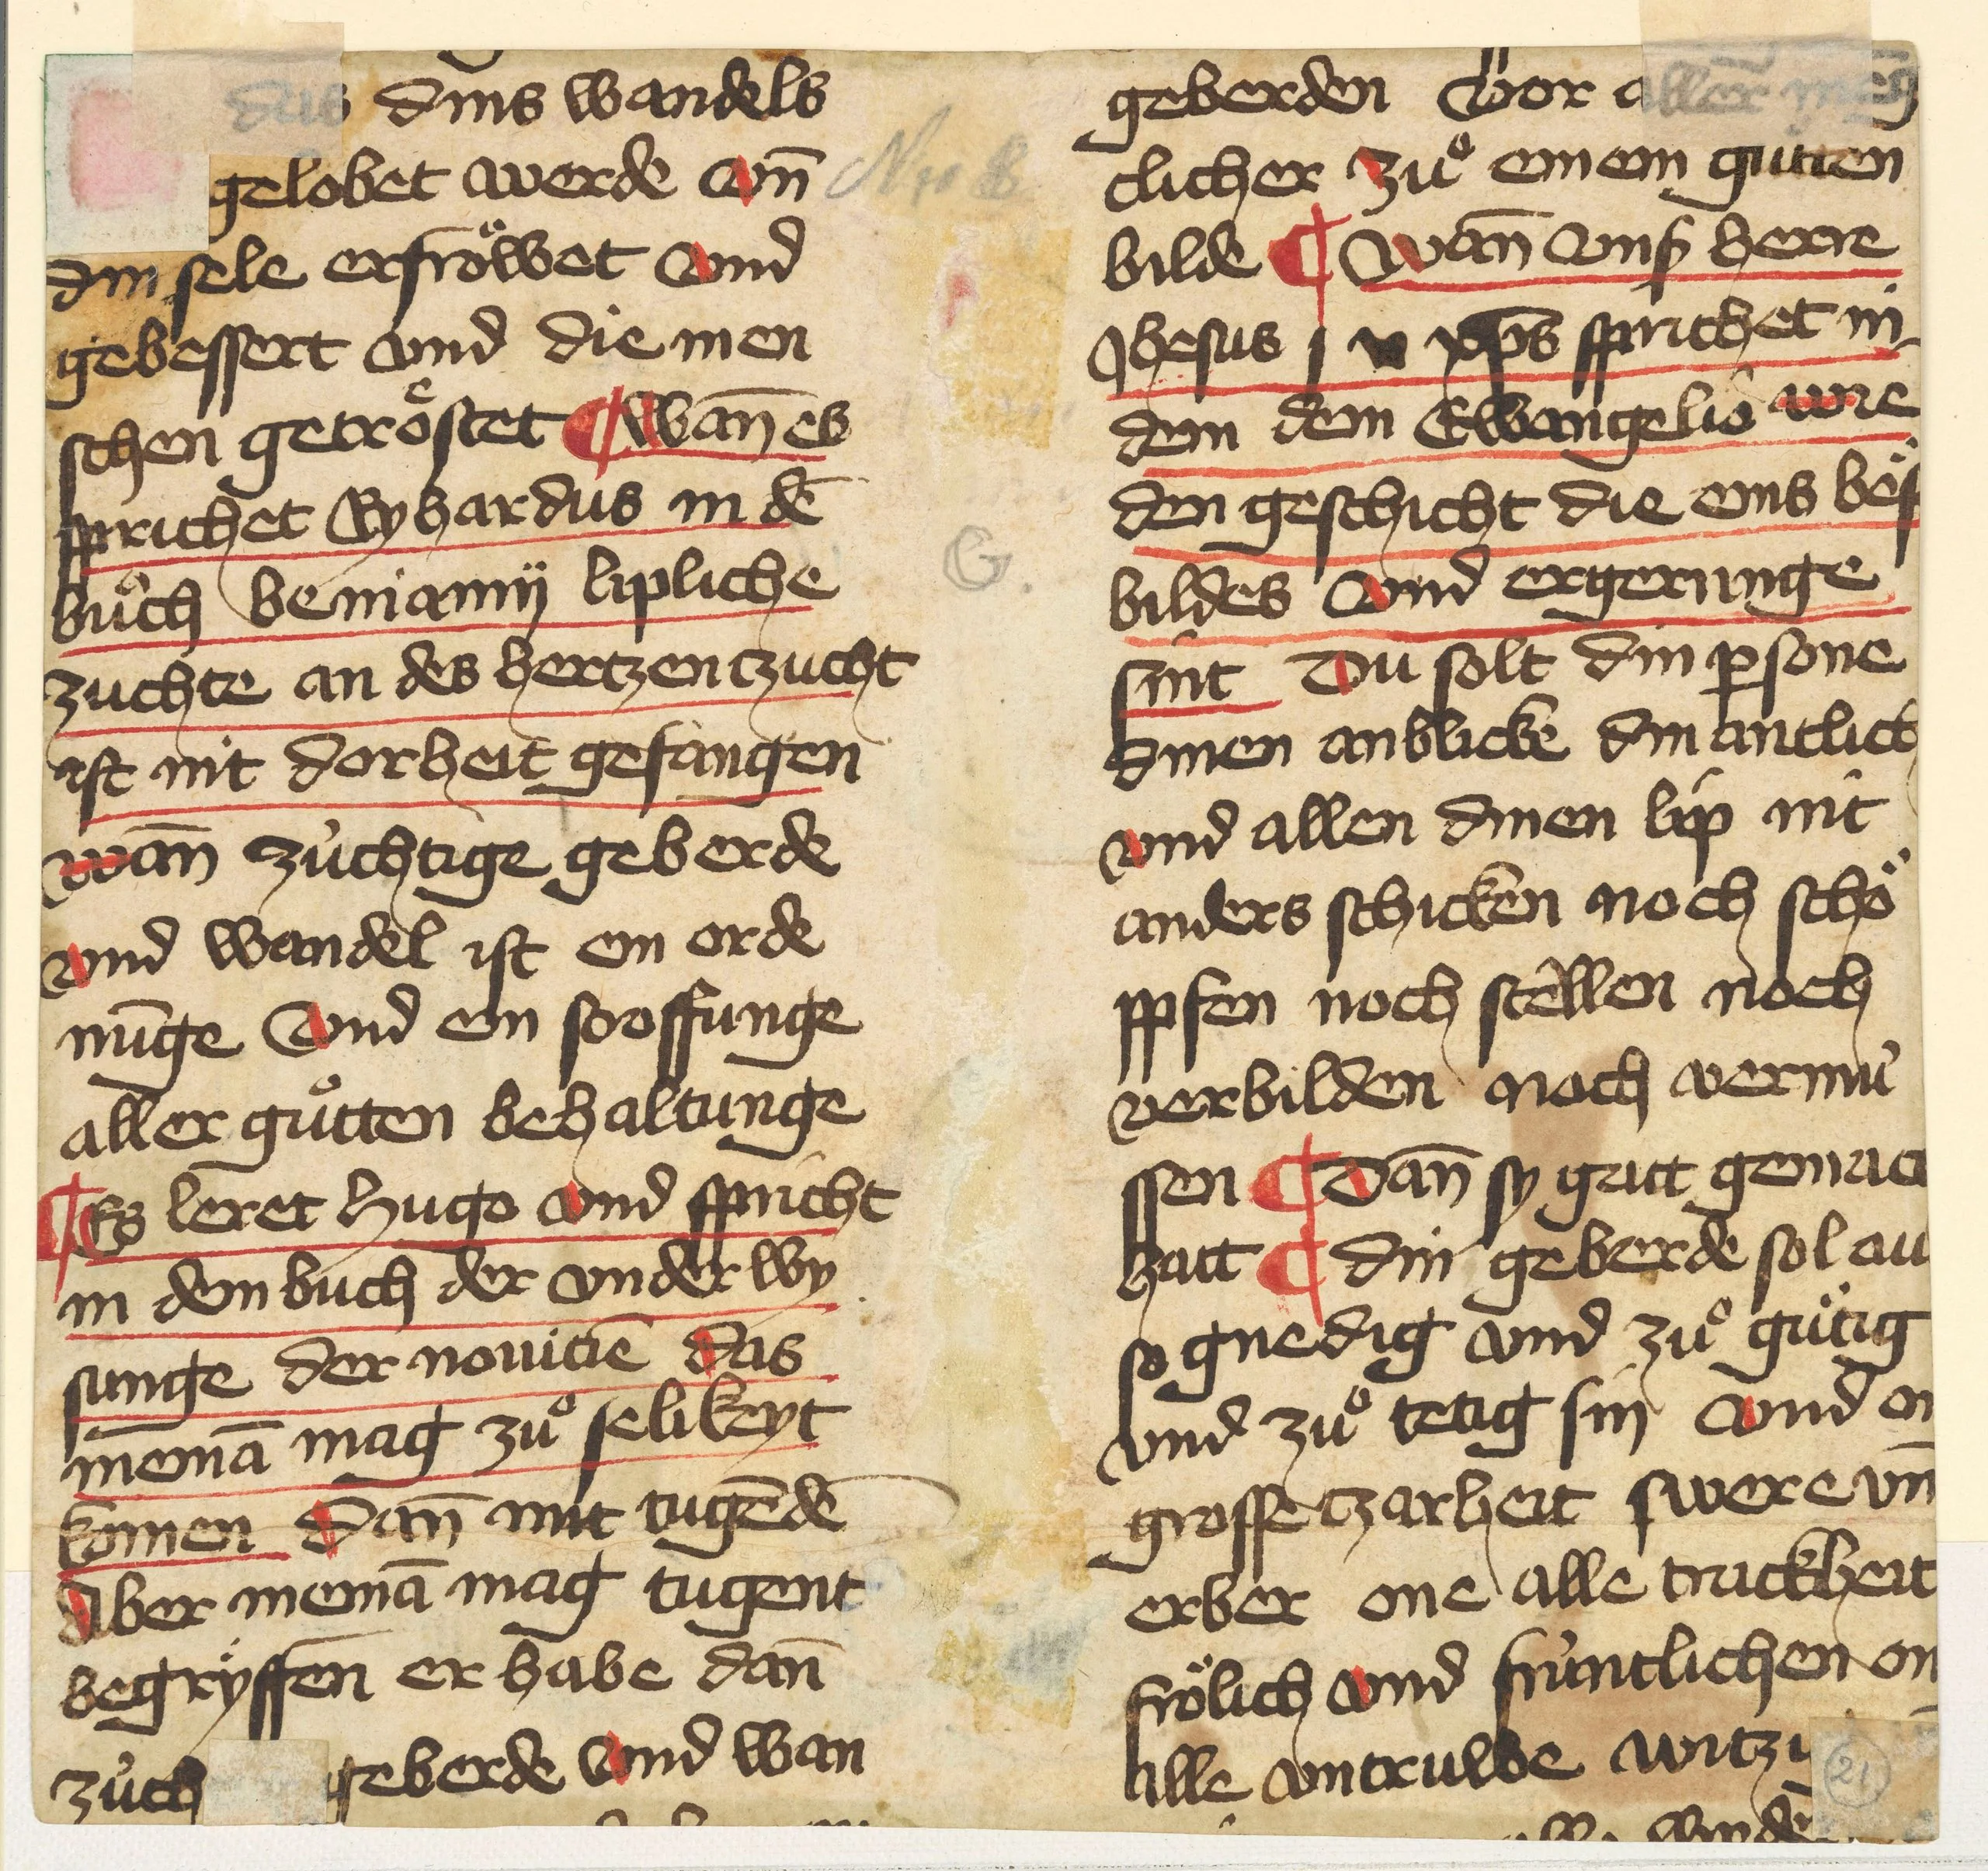 das dins wandels
gelobet werde vn̄
din sele erfröwet vnd
gebessert vnd die men
schen getröstet ¶ Wan̄ es
sprichet Ryhardus in dē
bůch beniamÿ lipliche
zuchte an des hertzen tzucht
ist nit dorheit gefangen
wan̄ zůchtige geberde
vnd wandel ist ein orde
nūge vnd ein sroffunge
aller gůtten behaltunge
¶ Es leret hugo vnd spricht
in dem buch der vnder wy
sunge der nouicien̄ das
niemā mag zů selikeyt
komen Dan̄ mit tugēde
Aber niemā mag tugent
begryffen er habe dan̄
zůch geberde vnd wan
geberden vor aller meng
clicher zů einem gutten
bilde ¶ Wan̄ vnß herre
Jhesus xp̄s sprichet in
dem dem Ewangelio wie
den geschicht die eins böß
bildes vnd ergerunge
sint Du solt din p̱sone
dinen anblicke din antlich
vnd allen dinen lip nit
anders schicken noch schö
ppfen noch stellen noch
verbilden noch vermů
ssen ¶ Dan̄ sy gatt gemacı
hatt ¶ din geberde sol au
so gnedig vnd zů gütig
vnd zů tetig sin vnd on
grosse tzarheit swere vn̄
erber one alle truckheit
frölich vnd früntlichen on
alle vntrulbe witzi
G.
21